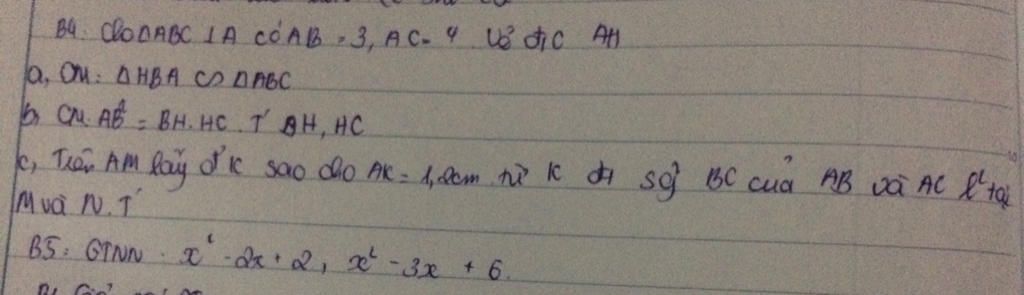 B4: Cho ΔABC ⊥ A có AB = 3, AC = 4 Vẽ đ/c AH
a, CM: ΔHBA ∽ ΔABC
b, CM: AB² = BH.HC. T' BH, HC
c, Trên AM lấy đ' K sao cho AK = 1,2cm từ K đt sg BC của AB và AC lʳ tại
M và N. T'
B5: GTNN: x² - 2x + 2, x² - 3x + 6.